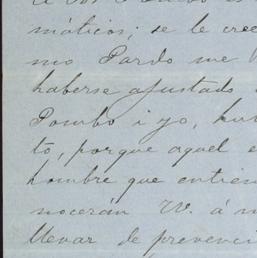 máticos; se le cree
mo Pardo me
haberse ajustado
Pombo i yo, hu
to, porque aquel e
hombre que entien
nocerán W. á m
llevar de prevenci